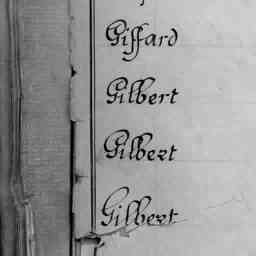 Giffard
Gilbert
Gilbert
Gilbert